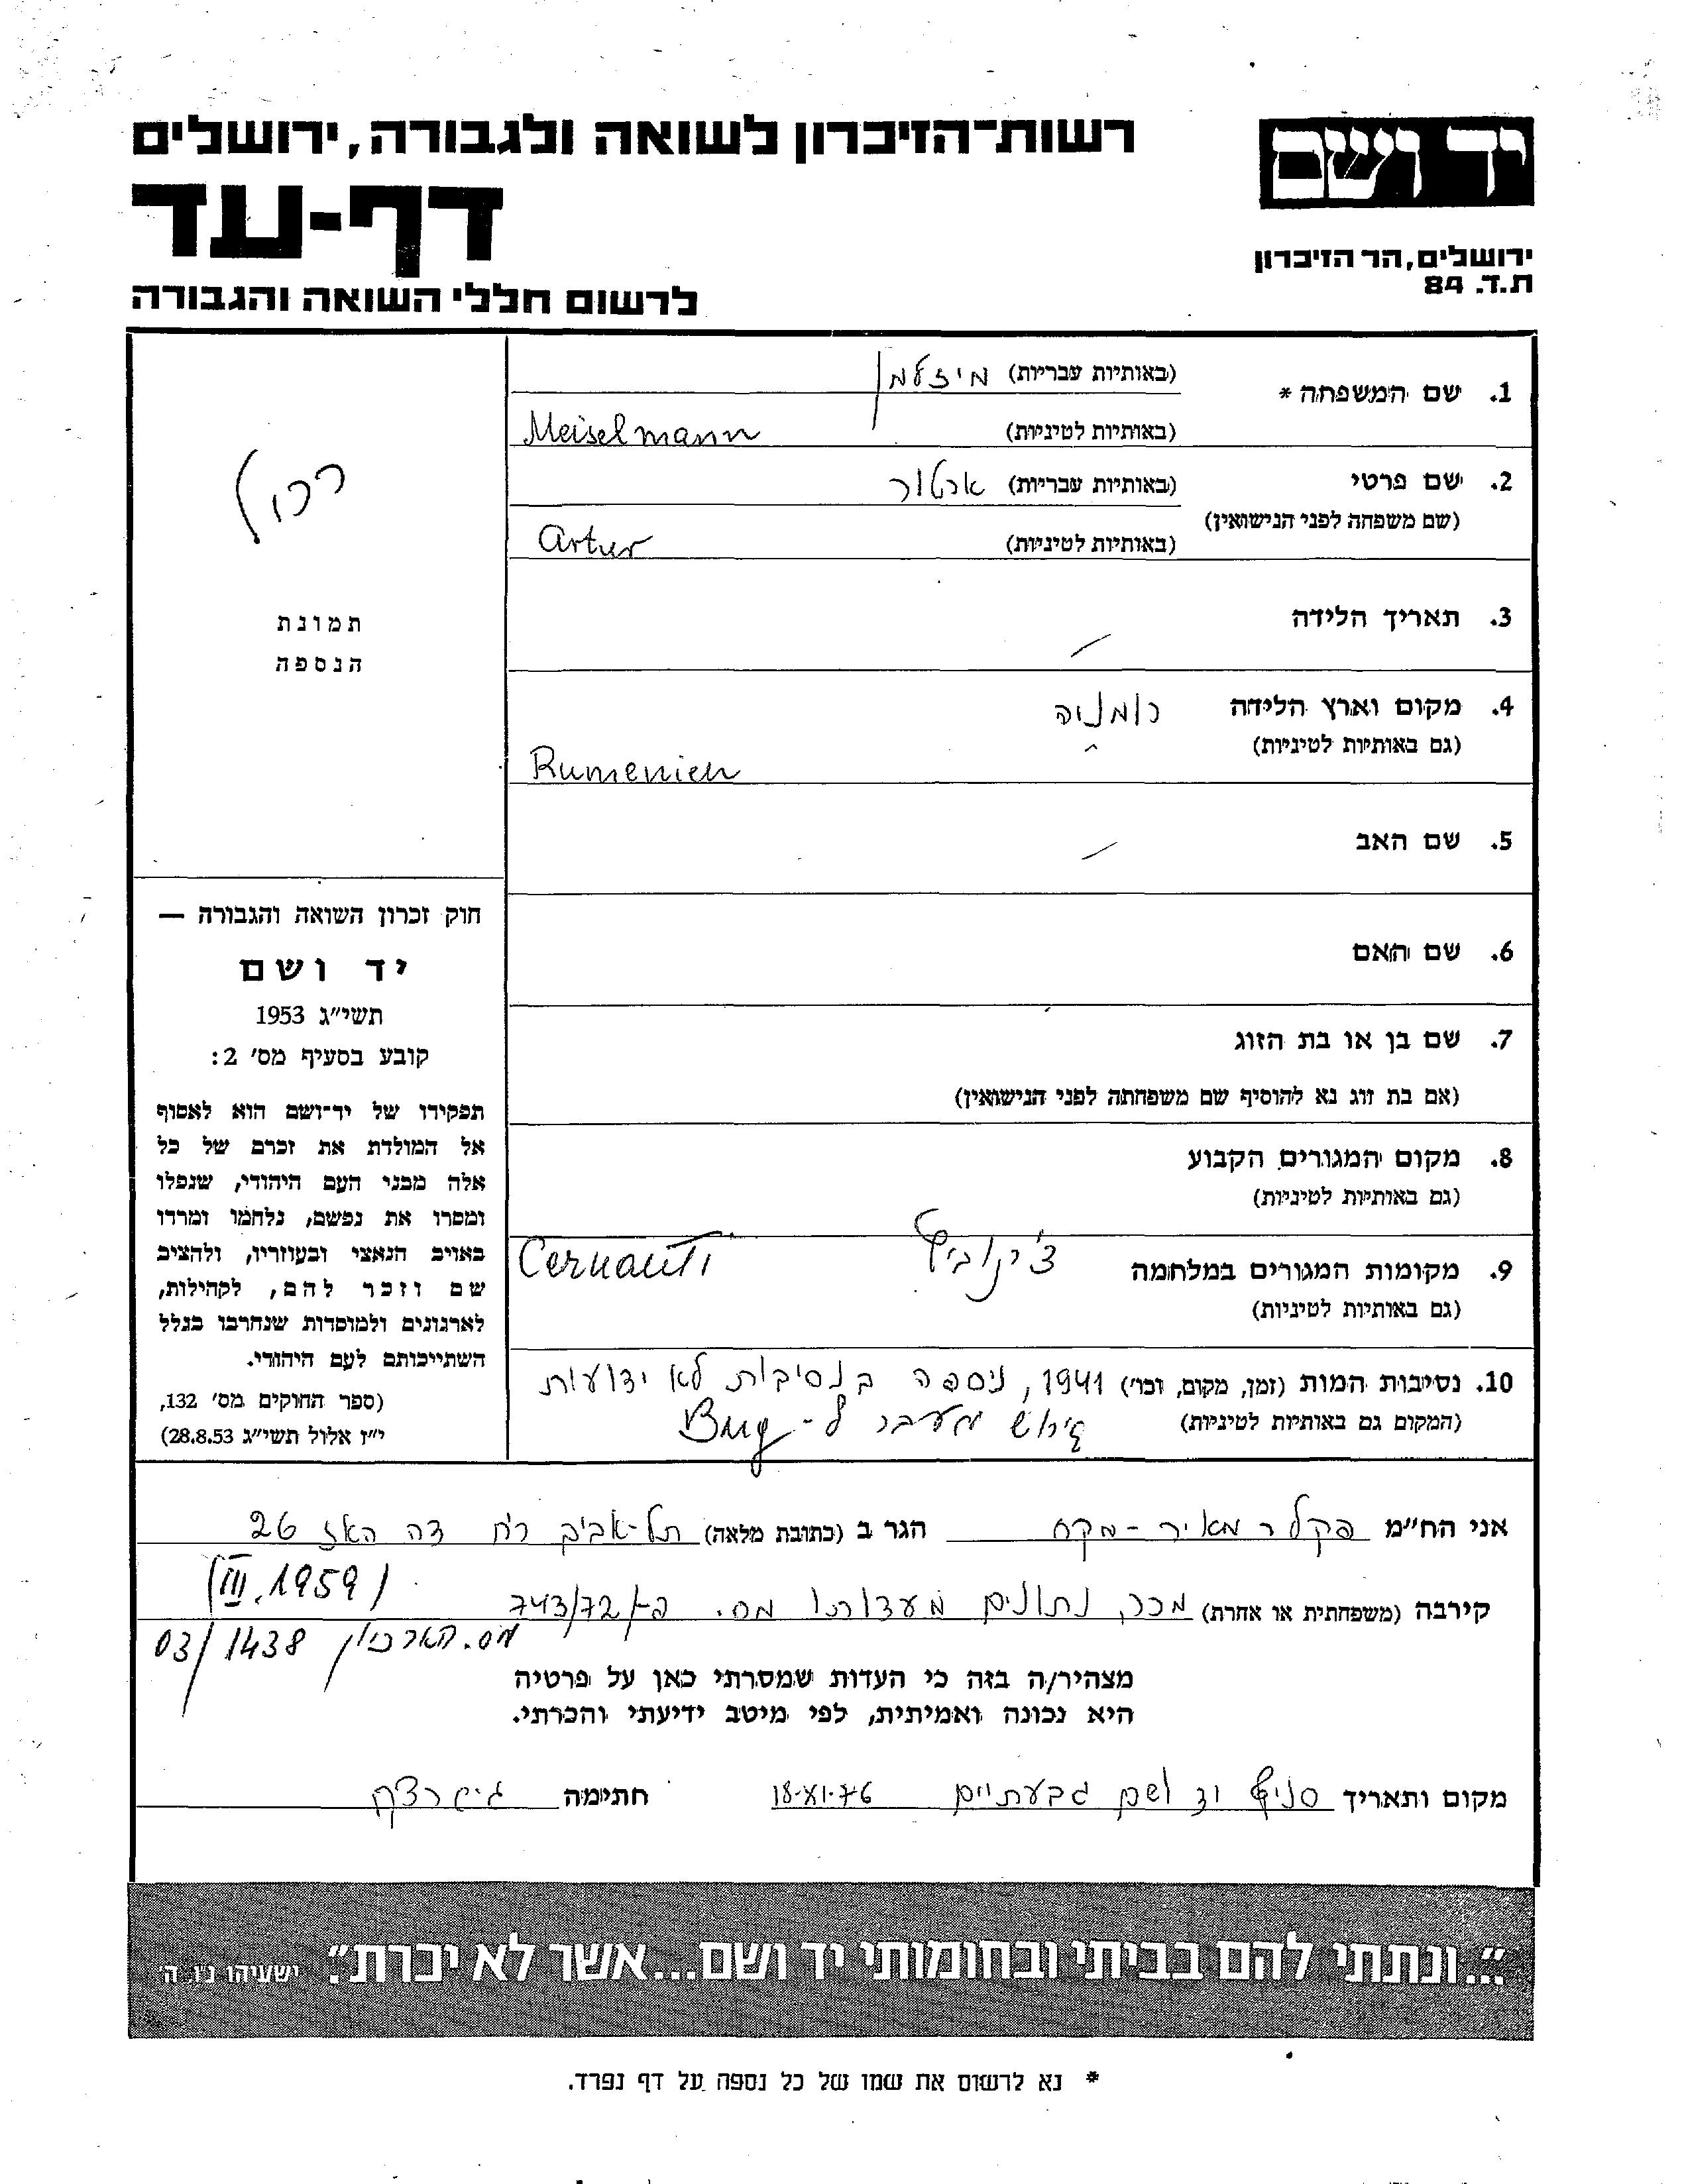 יד ושם
ירושלים, הר הזיכרון
ת.ד. 84
רשות־הזיכרון לשואה ולגבורה, ירושלים
דף-עד
לרשום חללי השואה והגבורה
1. שם המשפחה *
(באותיות עבריות) מיזלמן
(באותיות לטיניות) Meiselmann
2. שם פרטי
(באותיות עבריות) ארטור
(שם משפחה לפני הנישואין)
(באותיות לטיניות) Artur
3. תאריך הלידה
4. מקום וארץ הלידה רומניה
(גם באותיות לטיניות)
Rumenien
5. שם האב
6. שם האם
7. שם בן או בת הזוג
(אם בת זוג נא להוסיף שם משפחתה לפני הנישואין)
8. מקום המגורים הקבוע
(גם באותיות לטיניות)
9. מקומות המגורים במלחמה צ'רנוביץ Cernauti
(גם באותיות לטיניות)
10. נסיבות המות (זמן, מקום, וכו') 1941, ניספה בנסיבות לא ידועות
(המקום גם באותיות לטיניות) גירוש מעבר ל-Bug
רווק
תמונת
הנספה
חוק זכרון השואה והגבורה —
יד ושם
תשי״ג 1953
קובע בסעיף מס' 2:
תפקידו של יד־ושם הוא לאסוף
אל המולדת את זכרם של כל
אלה מבני העם היהודי, שנפלו
ומסרו את נפשם, נלחמו ומרדו
באויב הנאצי ובעוזריו, ולהציב
שם וזכר להם, לקהילות,
לארגונים ולמוסדות שנחרבו בגלל
השתייכותם לעם היהודי.
(ספר החוקים מס' 132,
י״ז אלול תשי״ג 28.8.53)
אני הח״מ פקלר מאיר-מקס הגר ב (כתובת מלאה) תל-אביב רח דה האז 26
קירבה (משפחתית או אחרת) מכר, נתונים מעדותו מס. פא/743/72 (III.1959)
מס. הארכיון 03/1438
מצהיר/ה בזה כי העדות שמסרתי כאן על פרטיה
היא נכונה ואמיתית, לפי מיטב ידיעתי והכרתי.
מקום ותאריך סניף יד ושם גבעתיים 18-XI-76 חתימה
״...ונתתי להם בביתי ובחומותי יד ושם...אשר לא יכרת״. ישעיהו נ״ו ה'
* נא לרשום את שמו של כל נספה על דף נפרד.